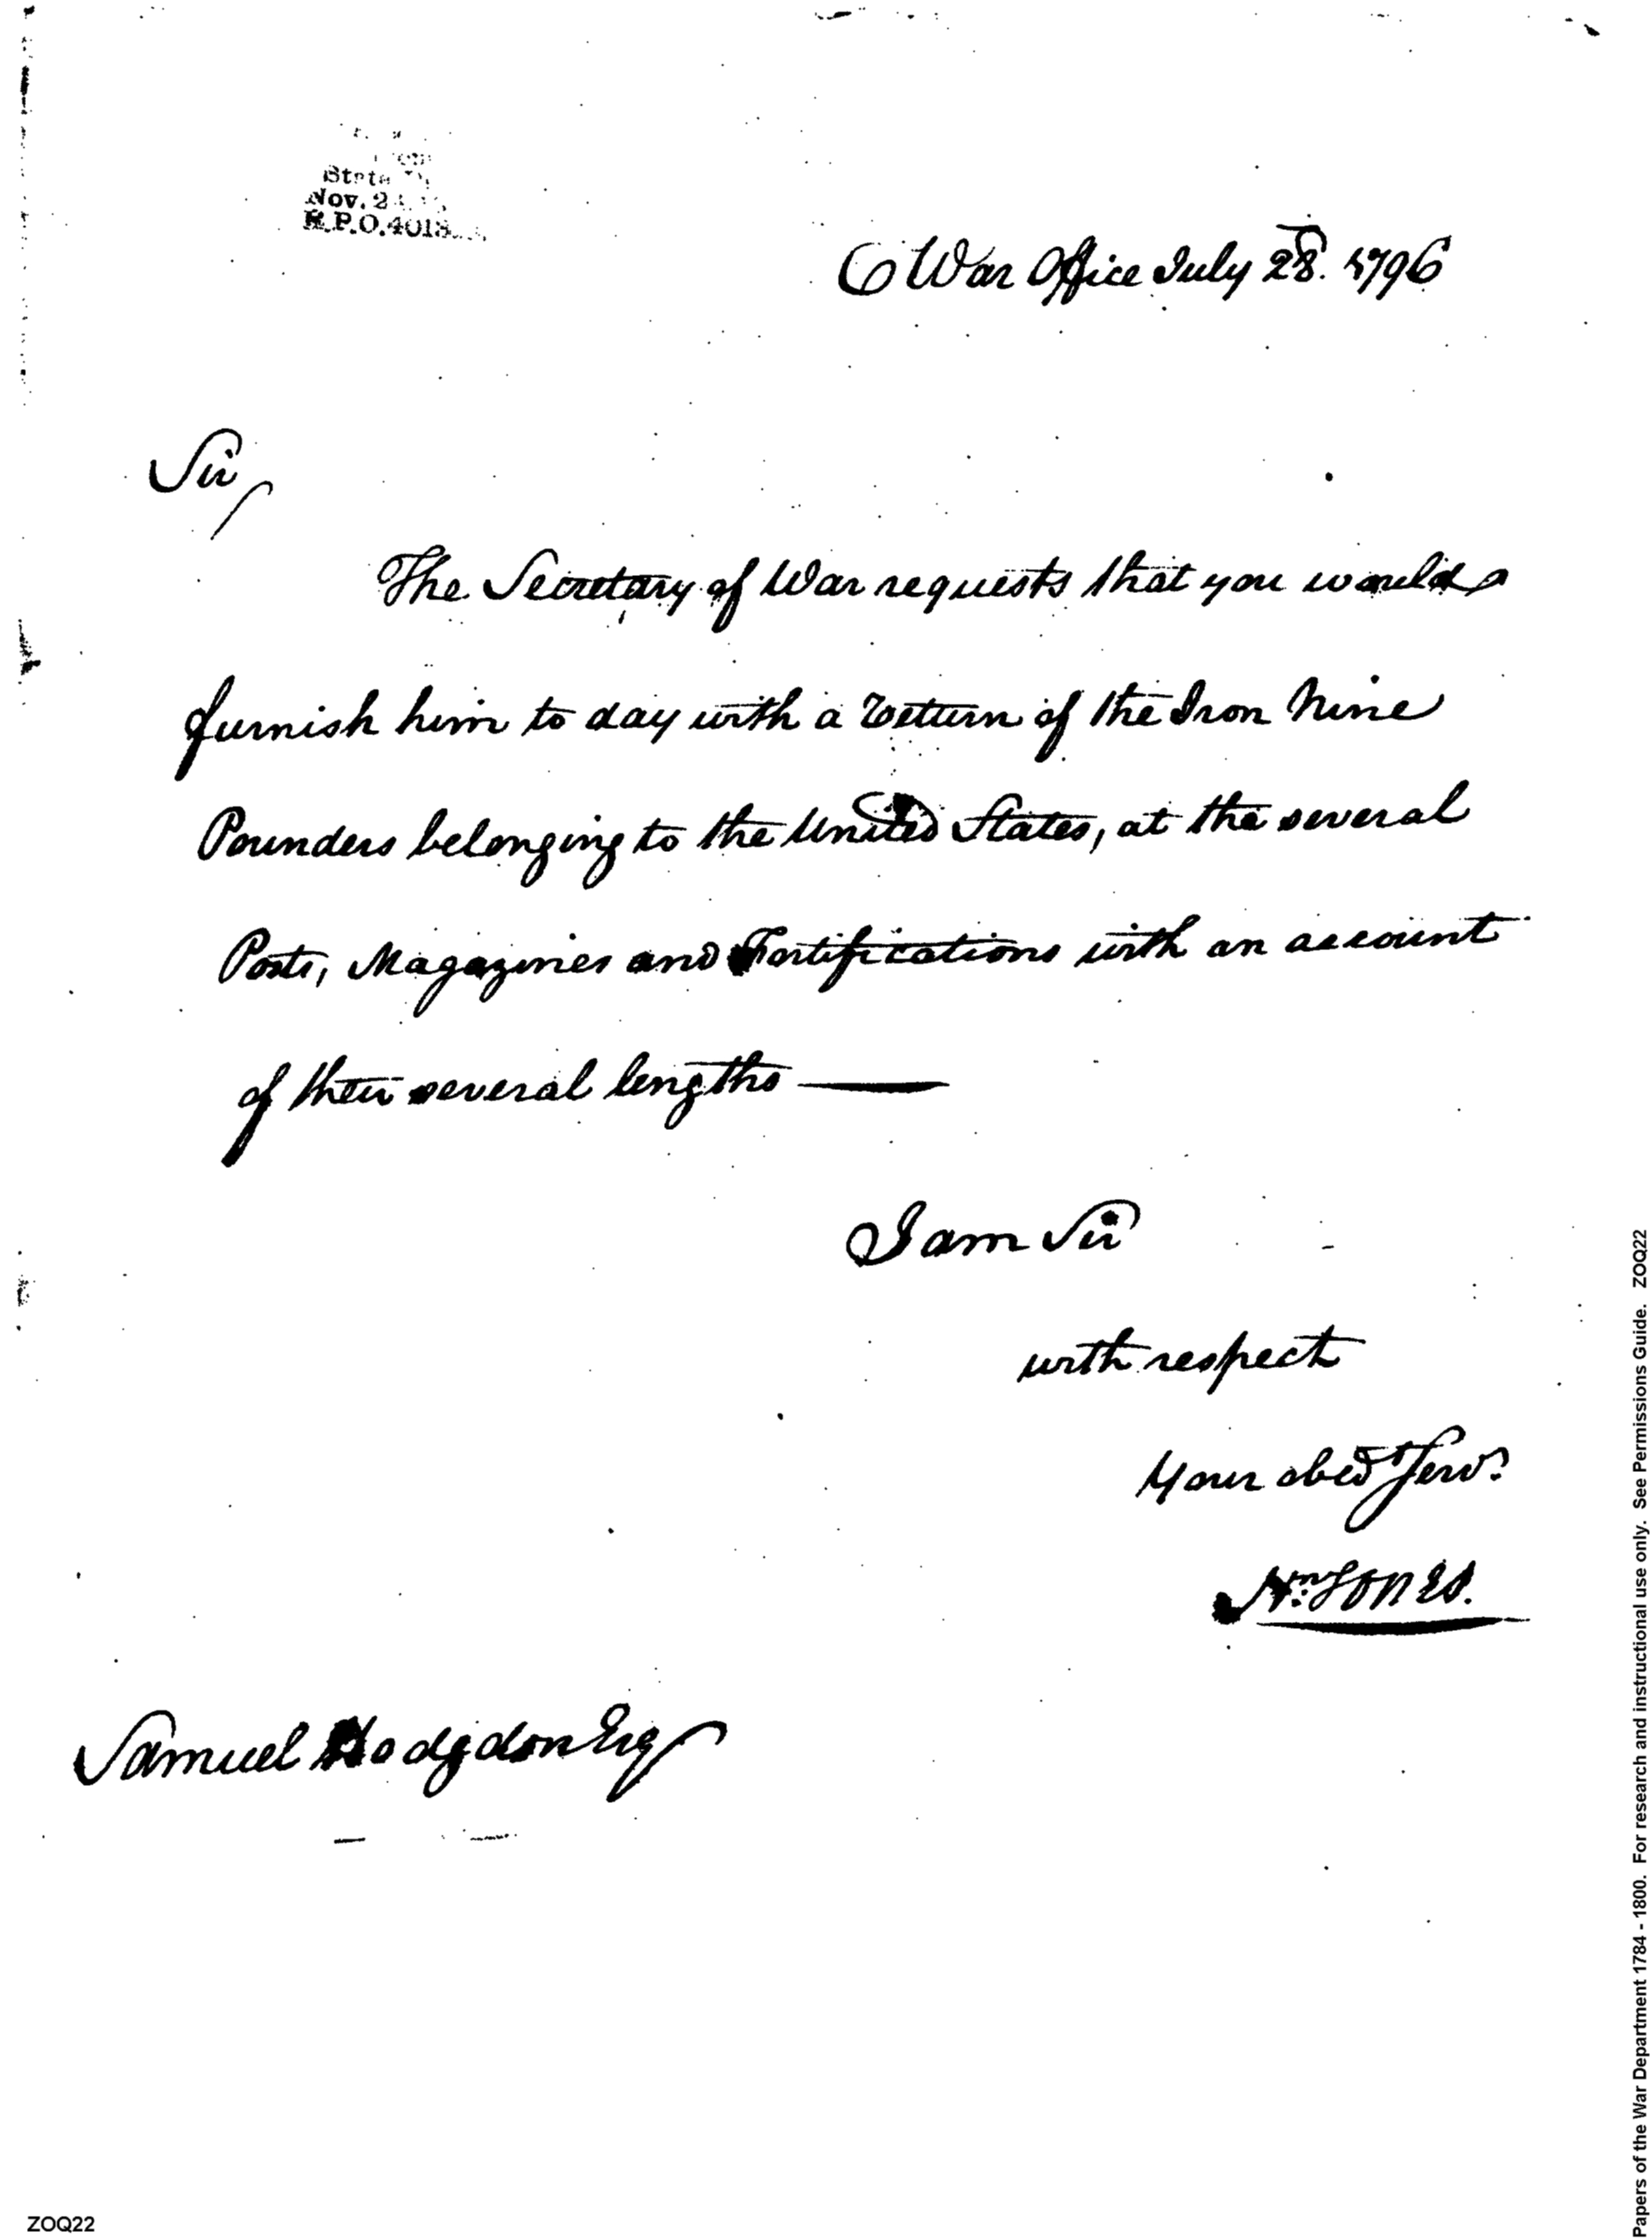 State
Nov. 2
R.P.O. 4018
War Office July 28th. 1796
Sir,
The Secretary of War requests that you would
furnish him to day with a Return of the Iron Nine
Pounders belonging to the United States, at the several
Posts, Magazines and Fortifications with an account
of their several lengths —
I am Sir
with respect
Your obedt Servt
Wm: Jones.
Samuel Hodgdon Esq
ZOQ22
Papers of the War Department 1784 - 1800. For research and instructional use only. See Permissions Guide. ZOQ22